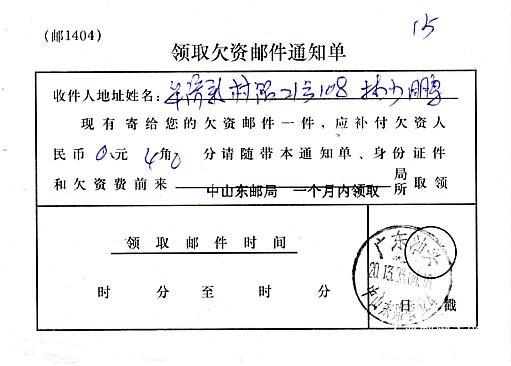 (邮1404)
15
领取欠资邮件通知单
收件人地址姓名: 新村路21号108 林少鹏
现有寄给您的欠资邮件一件，应补付欠资人
民币 0 元 4 角 0 分请随带本通知单、身份证件
和欠资费前来 中山东邮局 一个月内领取 局所 取领
领取邮件时间
时 分至 时 分
日戳
广东汕头